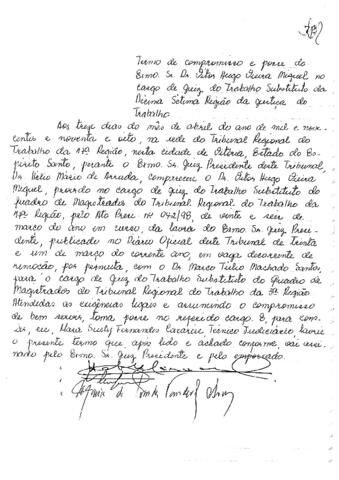 Termo de compromisso e posse do
Exmo. Sr. Dr. Vitor Hugo Vieira Miguel no
cargo de Juiz do Trabalho Substituto da
Décima Sétima Região da Justiça do
Trabalho.
Aos três dias do mês de abril do ano de mil e nove-
centos e noventa e oito, na sede do Tribunal Regional do
Trabalho da 17ª Região, nesta cidade de Vitória, Estado do Es-
pírito Santo, perante o Exmo. Sr. Juiz Presidente deste Tribunal,
Dr. Hélio Mário de Arruda, compareceu o Dr. Vitor Hugo Vieira
Miguel, provido no cargo de Juiz do Trabalho Substituto do
Quadro de Magistrados do Tribunal Regional do Trabalho da
17ª Região, pelo Ato Presi nº 042/98, de vinte e seis de
março do ano em curso, da lavra do Exmo. Sr. Juiz Presi-
dente, publicado no Diário Oficial deste Tribunal de trinta
e um de março do corrente ano, em vaga decorrente de
remoção, por permuta, com o Dr. Marco Túlio Machado Santos,
para o cargo de Juiz do Trabalho Substituto do Quadro de
Magistrados do Tribunal Regional do Trabalho da 3ª Região
Atendidas as exigências legais e assumindo o compromisso
de bem servir, toma posse no referido cargo. E, para cons-
tar, eu, Mara Suely Fernandes Técnico Judiciário lavrei
o presente termo que, após lido e achado conforme, vai assi-
nado pelo Exmo. Sr. Juiz Presidente e pelo empossado.